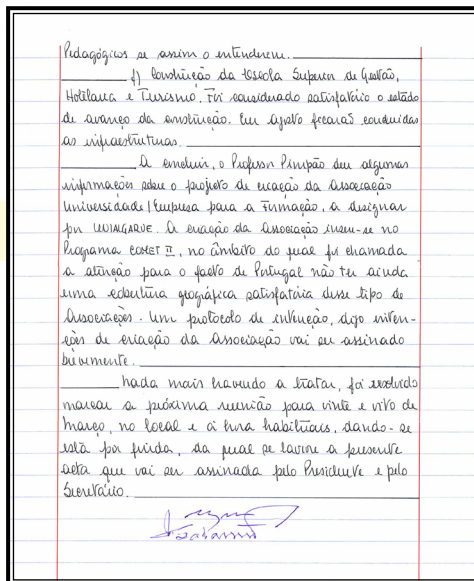 Pedagógicos se assim o entenderem.
f) Construção da Escola Superior de Gestão,
Hotelaria e Turismo. Foi considerado satisfatório o estado
de avanço da construção. Em Agosto ficarão concluídas
as infraestruturas.
A concluir, o Professor Pimpão deu algumas
informações sobre o projeto de criação da Associação
Universidade/Empresa para a Formação, a designar
por UNIALGARVE. A criação da Associação insere-se no
Programa COMET II, no âmbito do qual foi chamada
a atenção para o facto de Portugal não ter ainda
uma cobertura geográfica satisfatória desse tipo de
Associações. Um protocolo de intenção, digo inten-
ções de criação da Associação vai ser assinado
brevemente.
Nada mais havendo a tratar, foi resolvido
marcar a próxima reunião para vinte e oito de
Março, no local e à hora habituais, dando-se
esta por finda, da qual se lavrou a presente
acta que vai ser assinada pelo Presidente e pelo
Secretário.